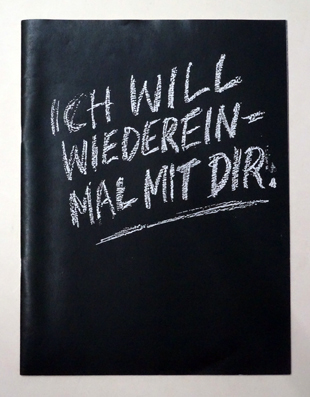 ICH WILL
WIEDEREIN-
MAL MIT DIR!